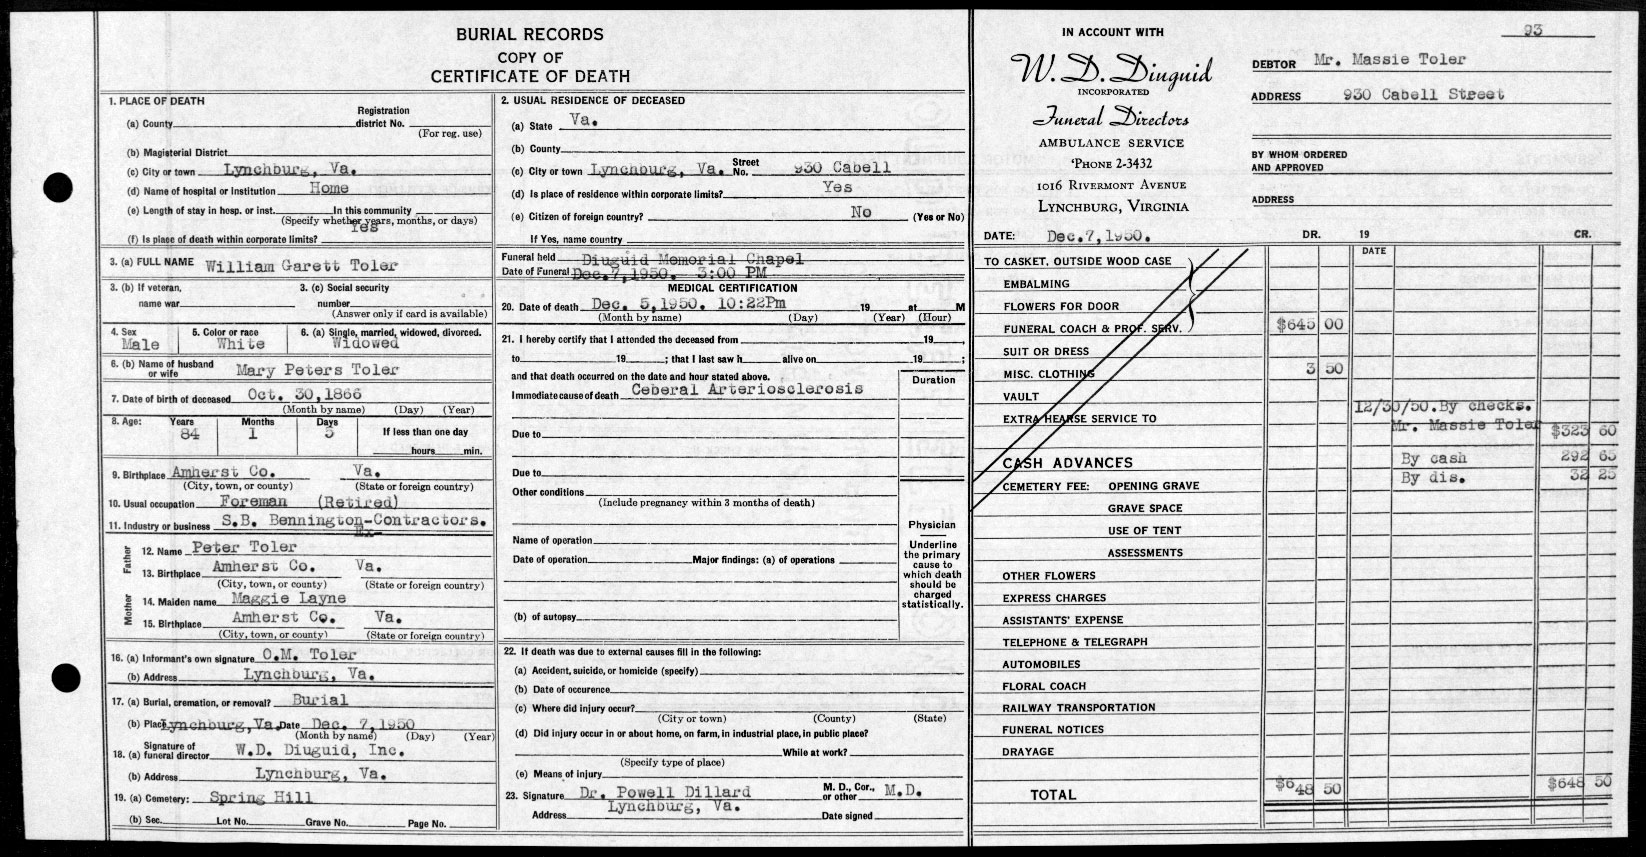 BURIAL RECORDS
COPY OF
CERTIFICATE OF DEATH
1. PLACE OF DEATH
(a) County Registration district No.
(For reg. use)
(b) Magisterial District
(c) City or town Lynchburg, Va.
(d) Name of hospital or institution Home
(e) Length of stay in hosp. or inst. In this community
(Specify whether years, months, or days)
(f) Is place of death within corporate limits? Yes
3. (a) FULL NAME William Garett Toler
3. (b) If veteran, name war 3. (c) Social security number
(Answer only if card is available)
4. Sex Male 5. Color or race White 6. (a) Single, married, widowed, divorced. Widowed
6. (b) Name of husband or wife Mary Peters Toler
7. Date of birth of deceased Oct. 30,1866
(Month by name) (Day) (Year)
8. Age: Years 84 Months 1 Days 5 If less than one day
hours min.
9. Birthplace Amherst Co. Va.
(City, town, or county) (State or foreign country)
10. Usual occupation Foreman (Retired)
11. Industry or business S.B. Bennington-Contractors.
Ex-
Father
12. Name Peter Toler
13. Birthplace Amherst Co. Va.
(City, town, or county) (State or foreign country)
Mother
14. Maiden name Maggie Layne
15. Birthplace Amherst Co. Va.
(City, town, or county) (State or foreign country)
16. (a) Informant's own signature O.M. Toler
(b) Address Lynchburg, Va.
17. (a) Burial, cremation, or removal? Burial
(b) Place Lynchburg,Va. Date Dec. 7,1950
(Month by name) (Day) (Year)
18. (a) Signature of funeral director W.D. Diuguid, Inc.
(b) Address Lynchburg, Va.
19. (a) Cemetery: Spring Hill
(b) Sec. Lot No. Grave No. Page No.
2. USUAL RESIDENCE OF DECEASED
(a) State Va.
(b) County
(c) City or town Lynchburg, Va. Street No. 930 Cabell
(d) Is place of residence within corporate limits? Yes
(e) Citizen of foreign country? No (Yes or No)
If Yes, name country
Funeral held Diuguid Memorial Chapel
Date of Funeral Dec.7,1950. 3:00 PM
MEDICAL CERTIFICATION
20. Date of death Dec. 5,1950. 10:22Pm 19 at M
(Month by name) (Day) (Year) (Hour)
21. I hereby certify that I attended the deceased from 19 ,
to 19 ; that I last saw h alive on 19 ;
and that death occurred on the date and hour stated above. Duration
Immediate cause of death Ceberal Arteriosclerosis
Due to
Due to
Other conditions
(Include pregnancy within 3 months of death)
Name of operation
Date of operation Major findings: (a) of operations
(b) of autopsy
Physician
Underline
the primary
cause to
which death
should be
charged
statistically.
22. If death was due to external causes fill in the following:
(a) Accident, suicide, or homicide (specify)
(b) Date of occurence
(c) Where did injury occur?
(City or town) (County) (State)
(d) Did injury occur in or about home, on farm, in industrial place, in public place?
While at work?
(Specify type of place)
(e) Means of injury
23. Signature Dr. Powell Dillard M. D., Cor., or other M.D.
Address Lynchburg, Va. Date signed
93
IN ACCOUNT WITH
W. D. Diuguid
INCORPORATED
Funeral Directors
AMBULANCE SERVICE
'PHONE 2-3432
1016 RIVERMONT AVENUE
LYNCHBURG, VIRGINIA
DEBTOR Mr. Massie Toler
ADDRESS 930 Cabell Street
BY WHOM ORDERED
AND APPROVED
ADDRESS
DATE: Dec.7,1950. DR. 19 CR.
DATE
TO CASKET, OUTSIDE WOOD CASE
EMBALMING
FLOWERS FOR DOOR
FUNERAL COACH & PROF. SERV. $645 00
SUIT OR DRESS
MISC. CLOTHING 3 50
VAULT
12/30/50.By checks.
EXTRA HEARSE SERVICE TO
Mr. Massie Toler $323 60
CASH ADVANCES By cash 292 65
CEMETERY FEE: OPENING GRAVE By dis. 32 25
GRAVE SPACE
USE OF TENT
ASSESSMENTS
OTHER FLOWERS
EXPRESS CHARGES
ASSISTANTS' EXPENSE
TELEPHONE & TELEGRAPH
AUTOMOBILES
FLORAL COACH
RAILWAY TRANSPORTATION
FUNERAL NOTICES
DRAYAGE
TOTAL $648 50 $648 50